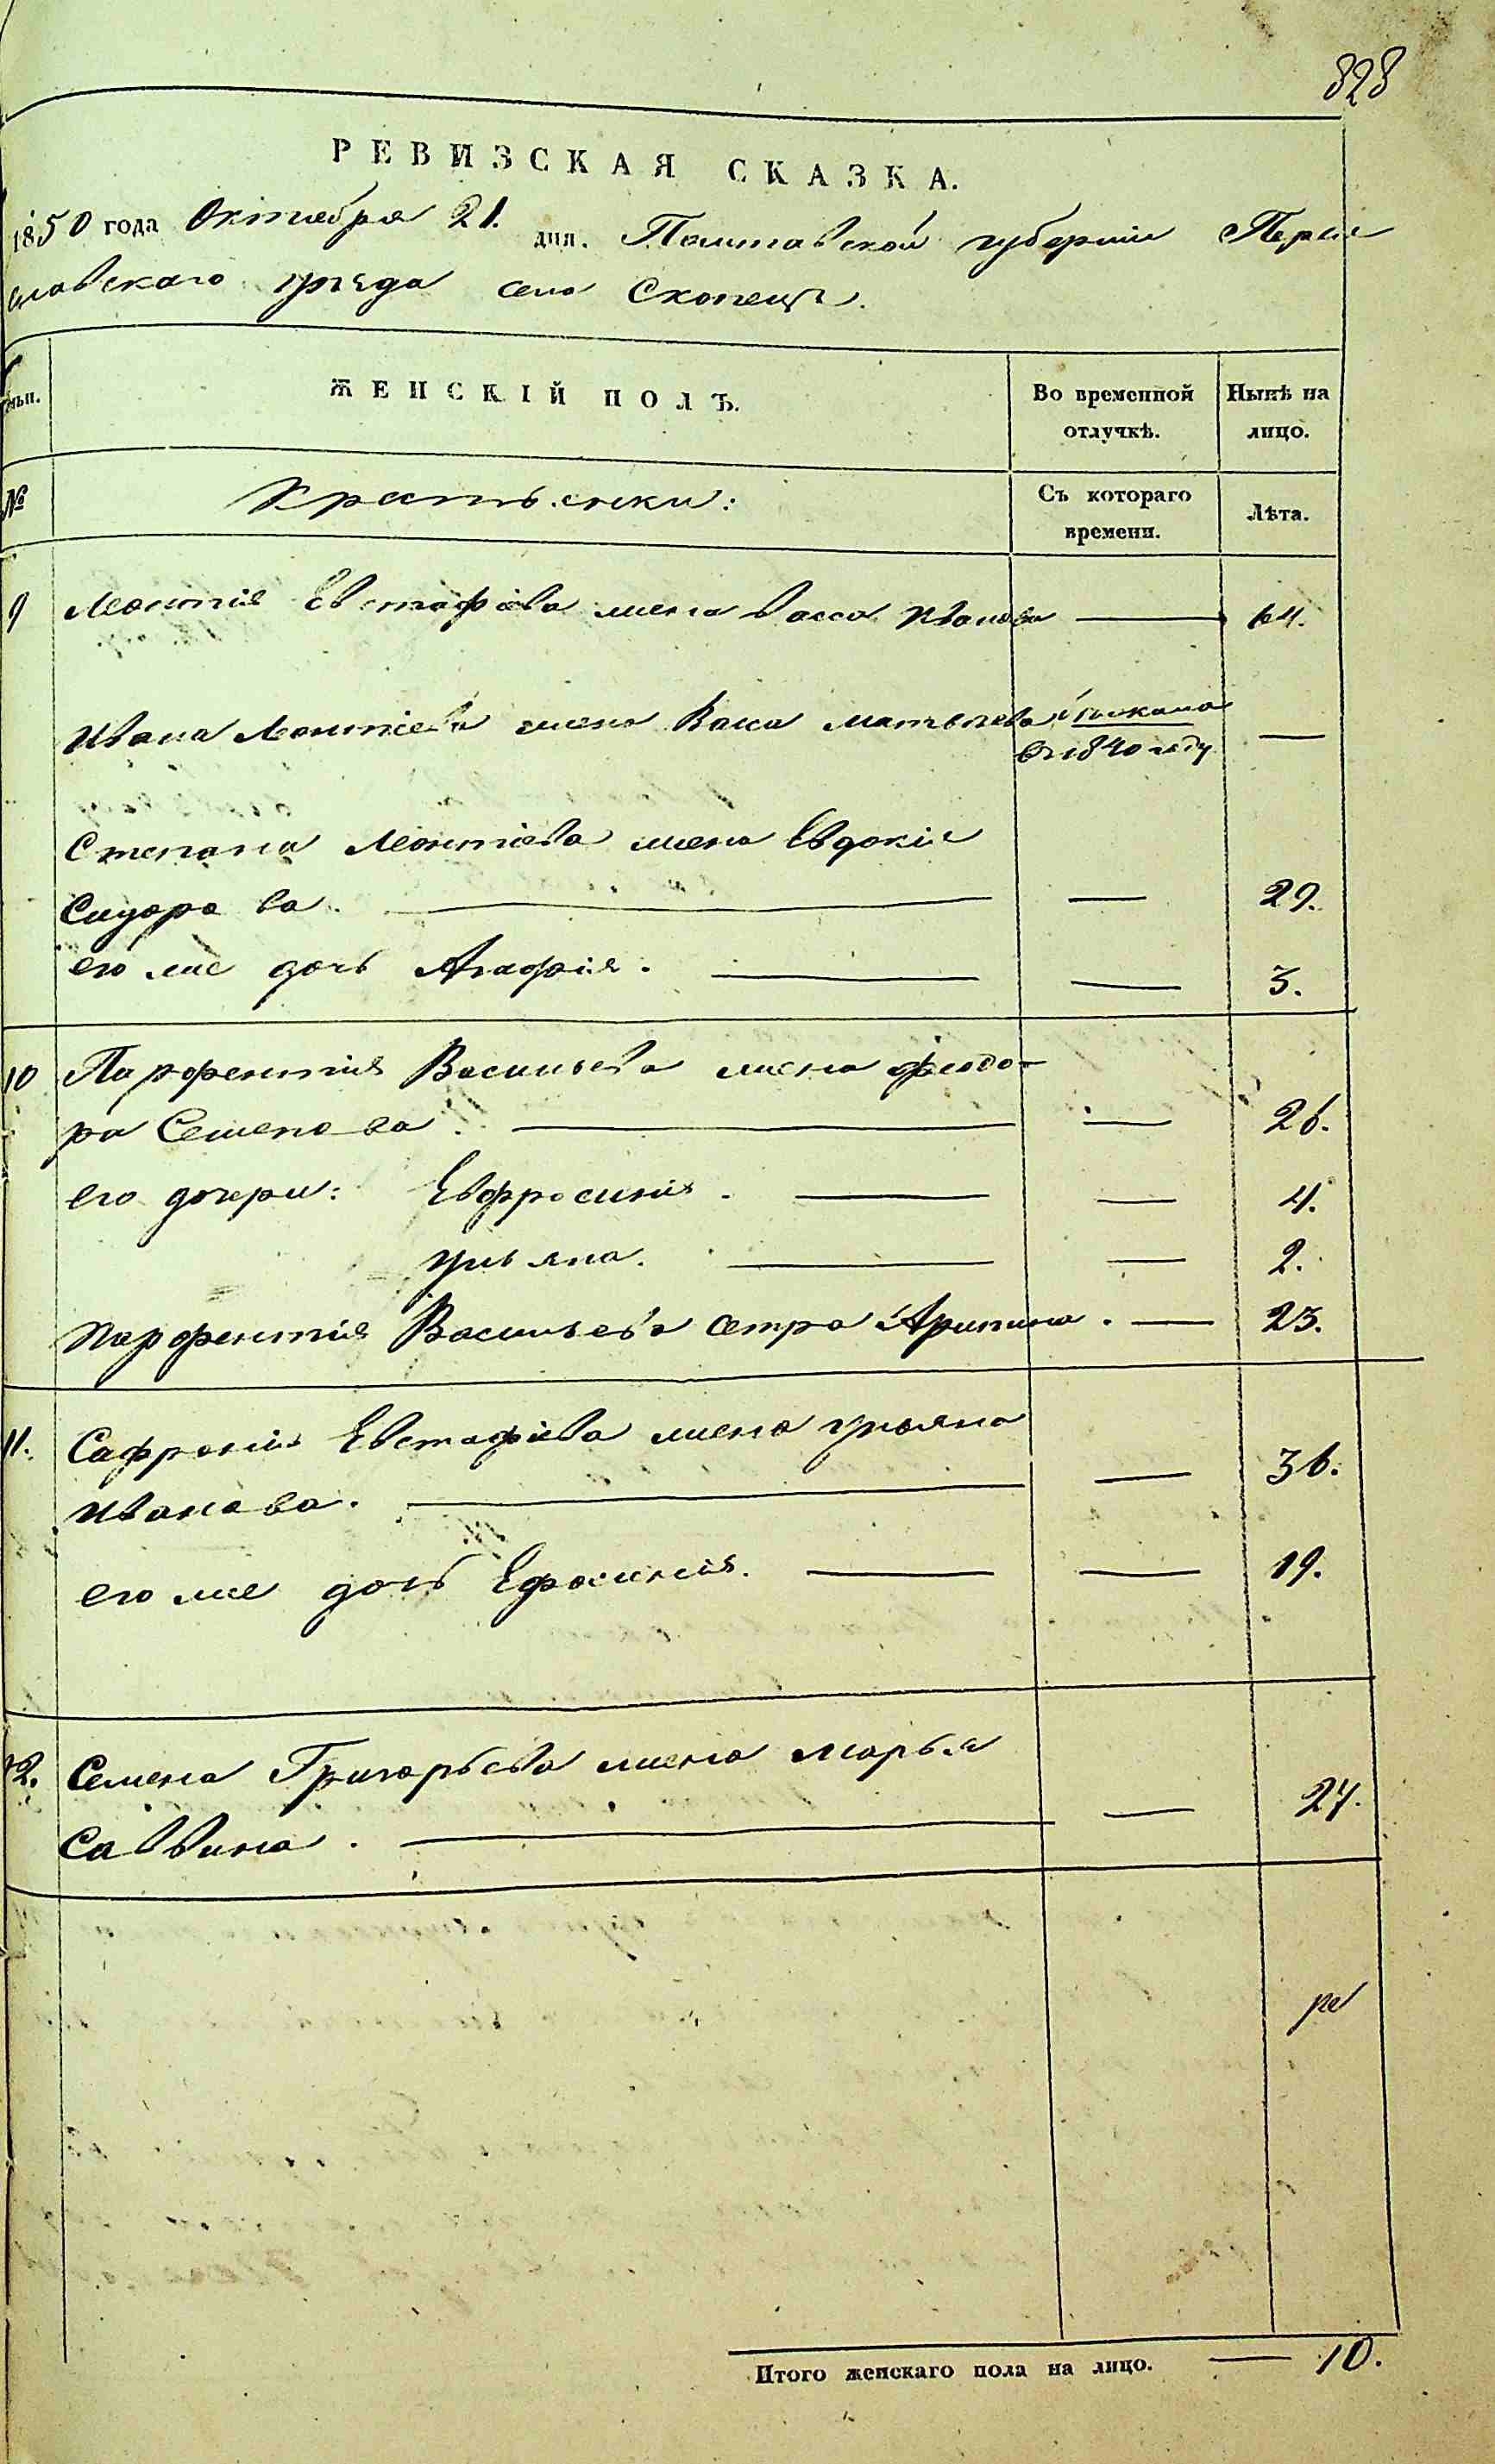 828
РЕВИЗСКАЯ СКАЗКА.
1850 года Октября 21. дня. Полтавской губернии Перея
славскаго уезда село Скопецъ.
ЖЕНСКІЙ ПОЛЪ.
Во временной
отлучкѣ.
Нынѣ на
лицо.
№
Крестьянки:
Съ котораго
времени.
Лѣта.
9 Леонтія Евстафіева жена Васса Иванова — 64.
Ивана Леонтіева жена Васа Матвеева
въ 1840 году —
Степана Леонтіева жена Евдокія
Сидорова. — — 29.
его же дочь Агафія. — — 3.
10 Парфентія Васильева жена Феодо-
ра Семенова. — — 26.
его дочери: Евфросинія. — — 4.
Ульяна. — — 2.
Парфентія Васильева сестра Арипина. — 23.
11. Сафронія Евстафіева жена Ульяна
Иванова. — — 36.
его же дочь Ефросинія. — — 19.
12. Семена Григорьева жена Марья
Саввина. — — 27.
Итого женскаго пола на лицо. — 10.